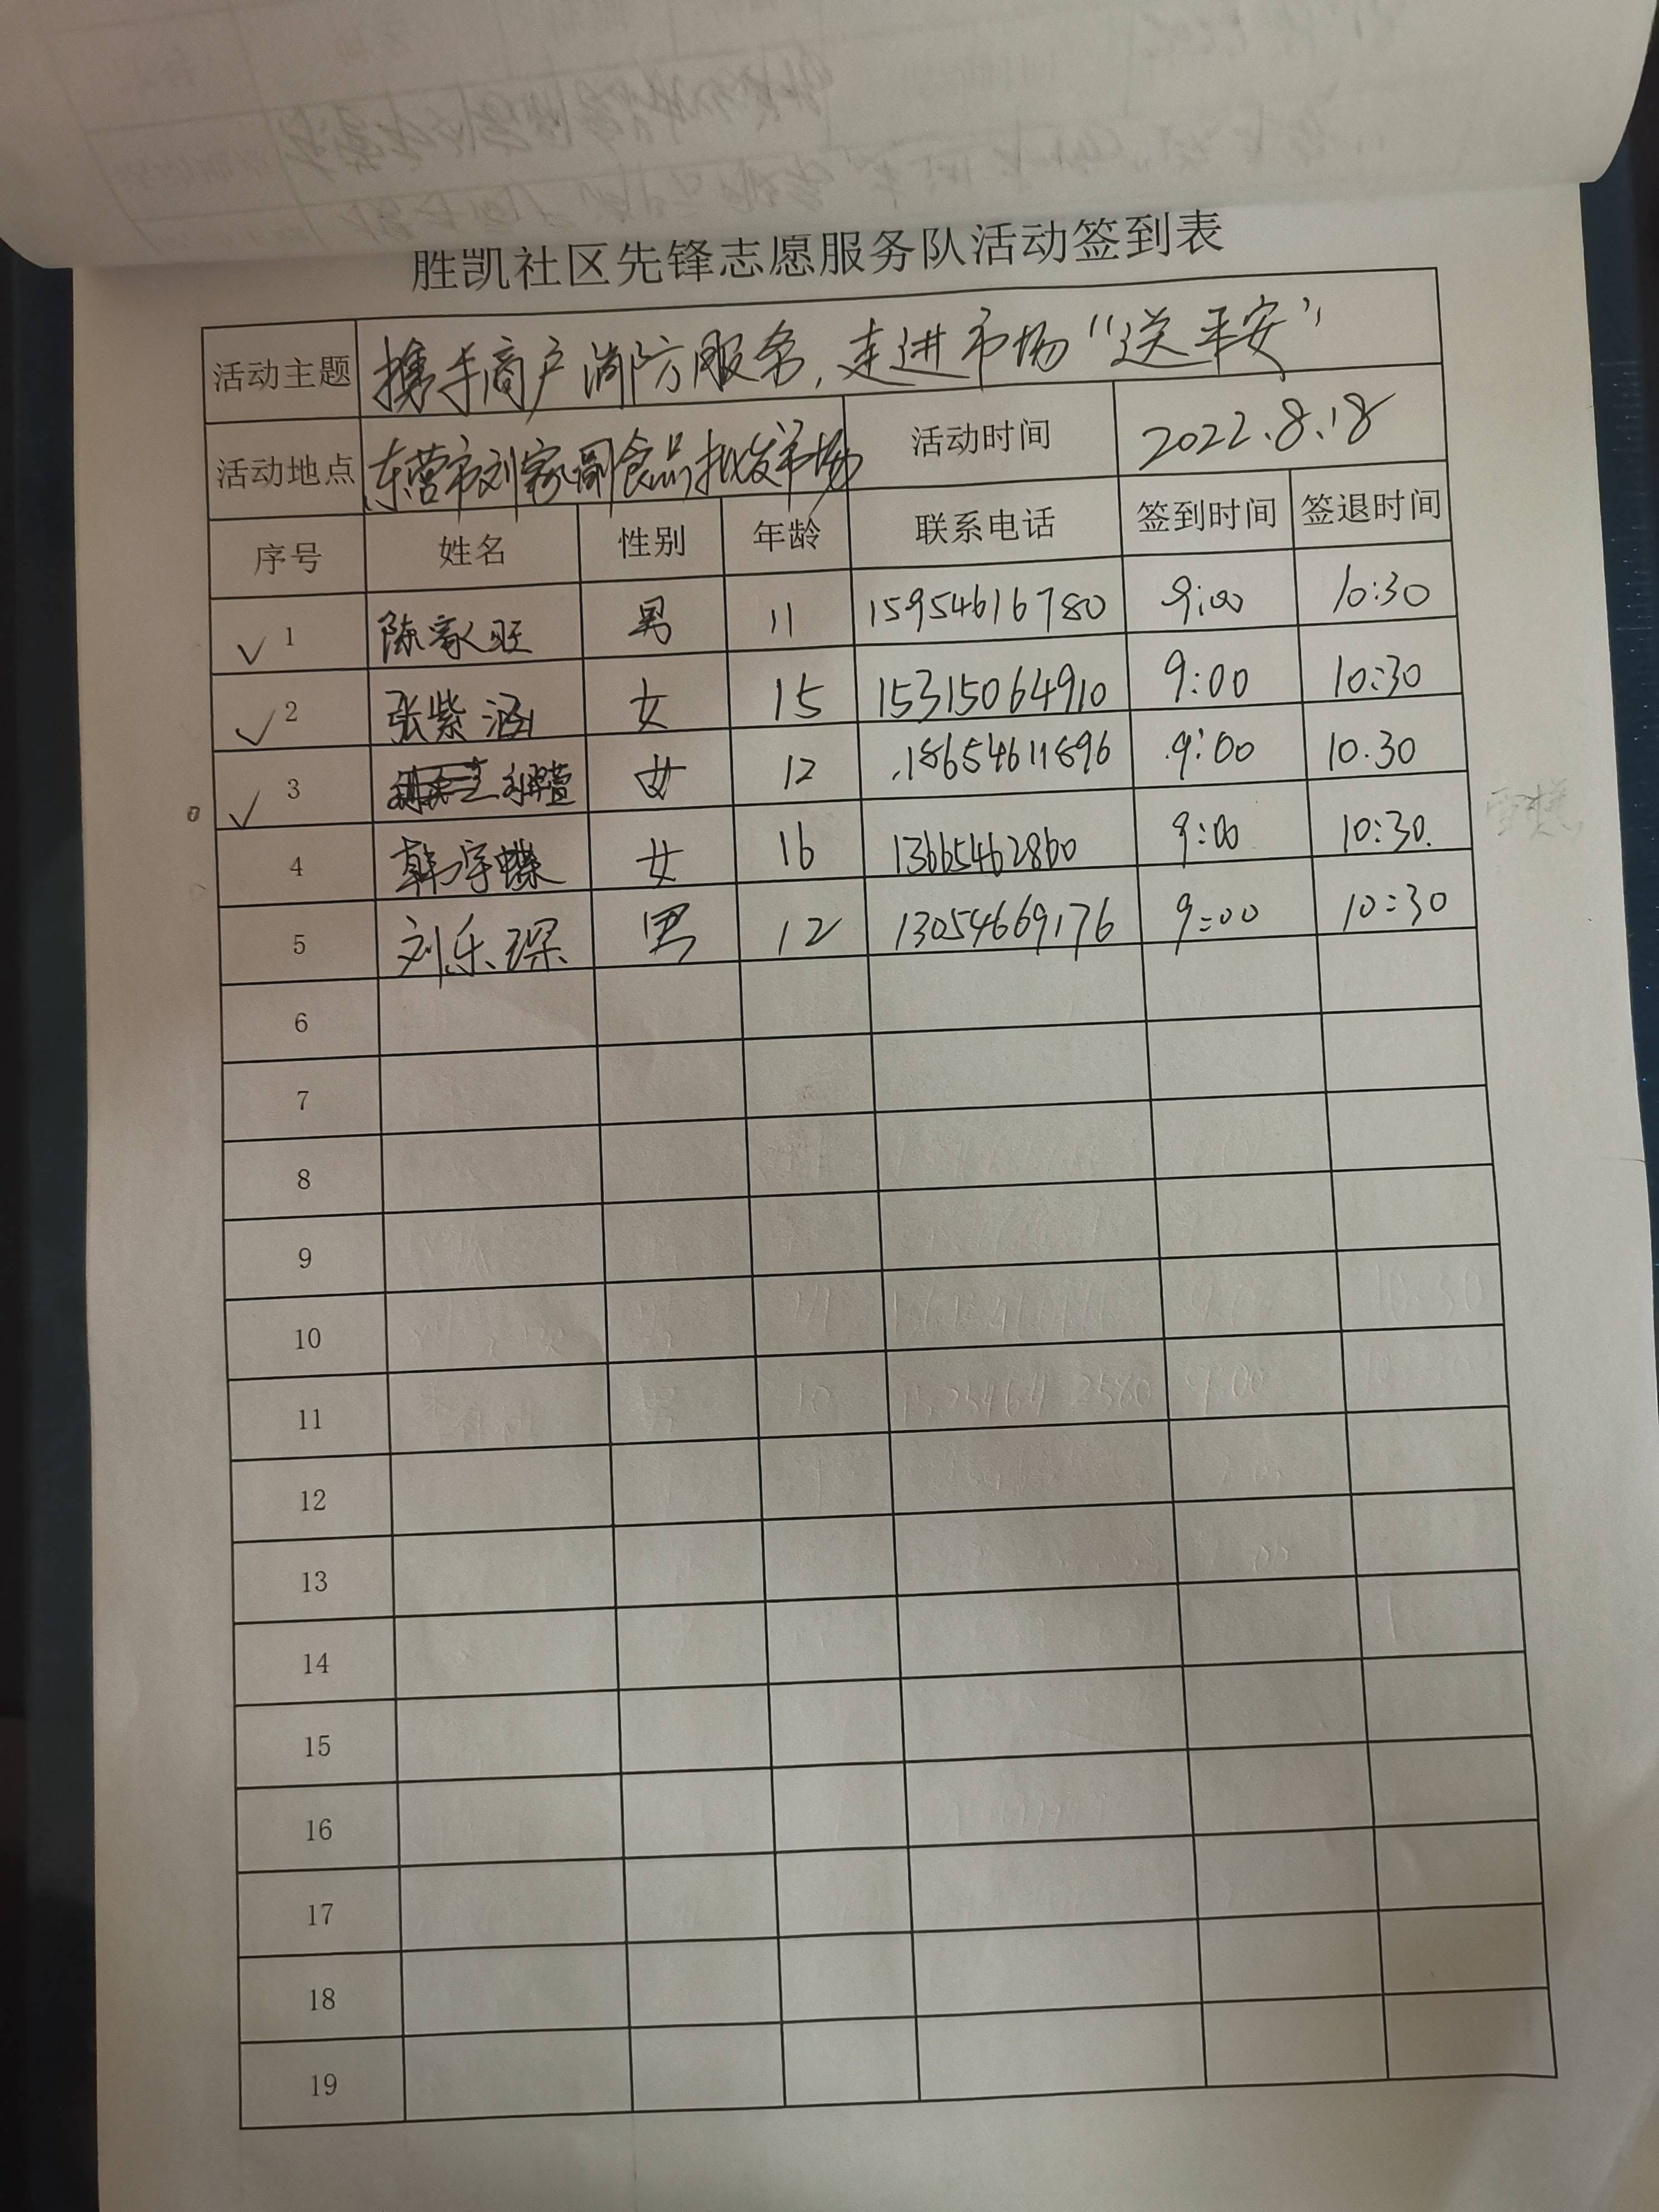 胜凯社区先锋志愿服务队活动签到表
活动主题 携手商户消防服务,走进市场“送平安”
活动地点 东营市刘家副食品批发市场 活动时间 2022.8.18
序号 姓名 性别 年龄 联系电话 签到时间 签退时间
1 陈家旺 男 11 15954616780 9:00 10:30
2 张紫涵 女 15 15315064910 9:00 10:30
3 女 12 18654611896 9:00 10.30
4 韩宇蝶 女 16 13665462860 9:00 10:30.
5 刘乐琛 男 12 13054669176 9:00 10:30
6
7
8
9
10
11
12
13
14
15
16
17
18
19